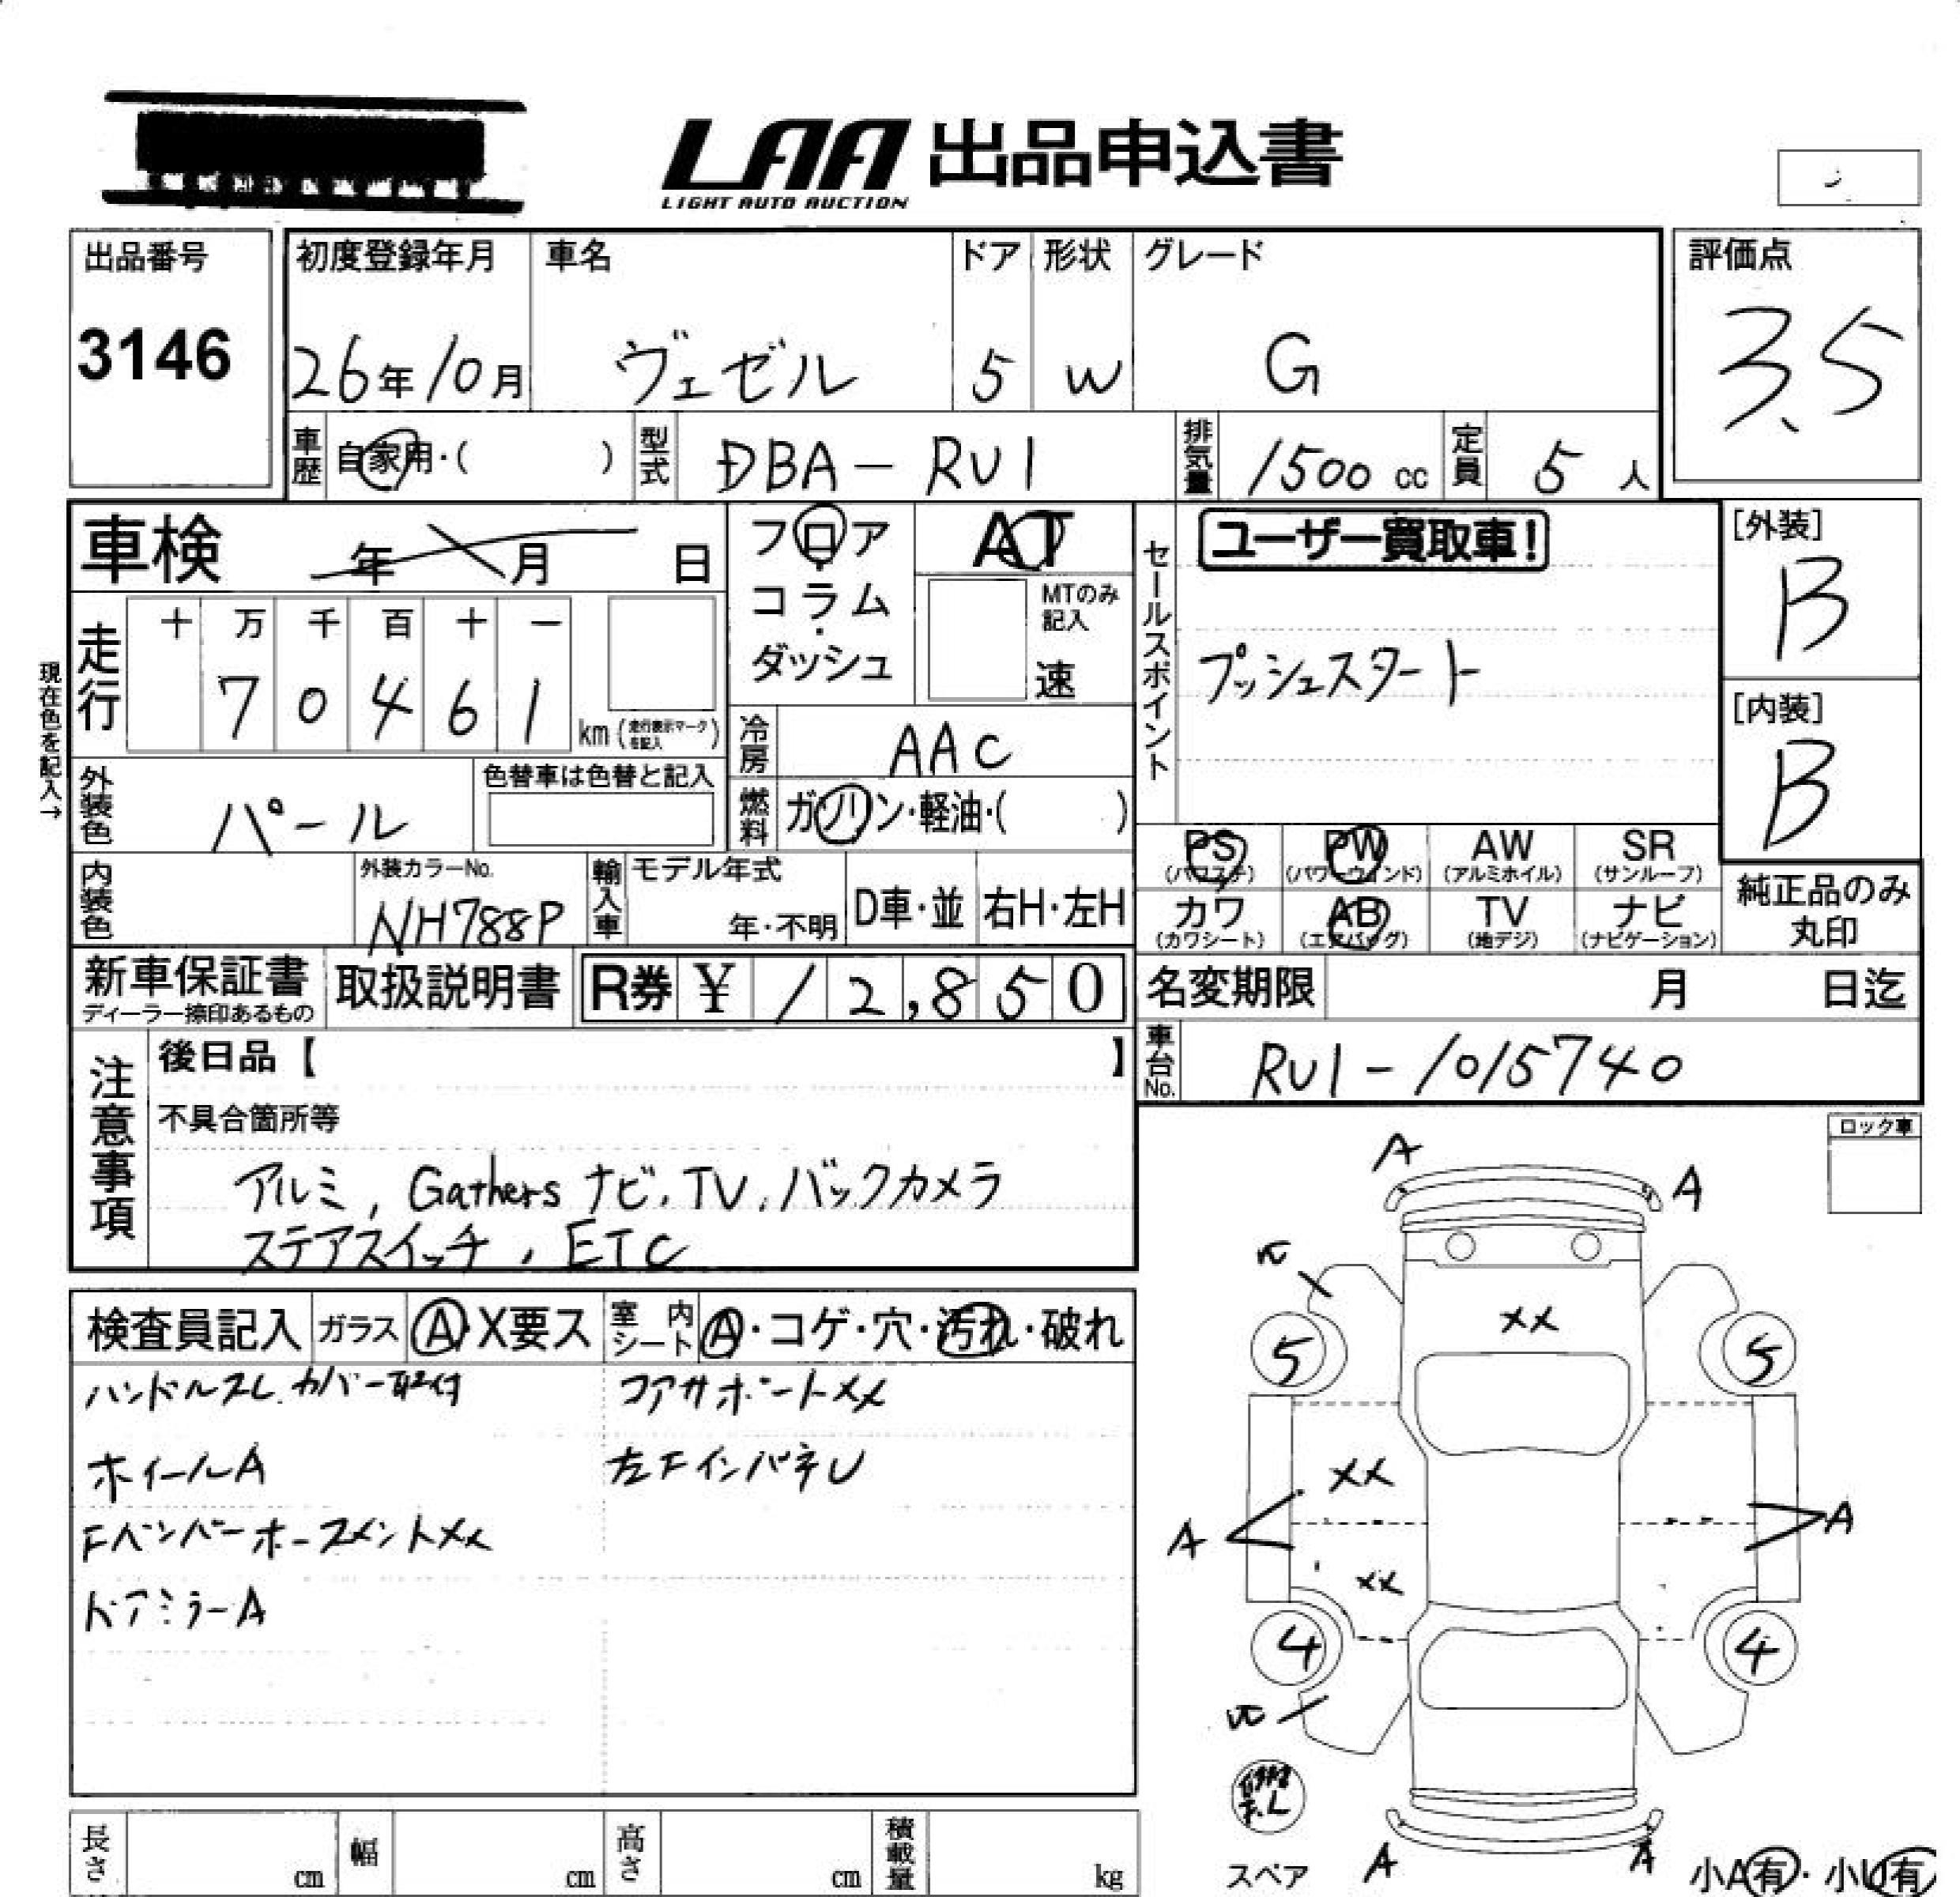 LAA 出品申込書
LIGHT AUTO AUCTION
出品番号
3146
初度登録年月
26年10月
車名
ヴェゼル
ドア
5
形状
W
グレード
G
評価点
3.5
車歴 自家用・( )
型式 DBA-RU1
排気量 1500 cc
定員 5 人
車検 年 月 日
フロア
コラム
ダッシュ
AT
MTのみ記入
速
セールスポイント
ユーザー買取車!
プッシュスタート
[外装]
B
[内装]
B
現在色を記入→
走行
十 万 千 百 十 一
7 0 4 6 1 km (走行表示マークを記入)
冷房 AAC
燃料 ガソリン・軽油・( )
外装色 パール
色替車は色替と記入
内装色
外装カラーNo.
NH788P
輸入車
モデル年式
年・不明
D車・並
右H・左H
PS (パワステ)
PW (パワーウインド)
AW (アルミホイル)
SR (サンルーフ)
カワ (カワシート)
AB (エアバッグ)
TV (地デジ)
ナビ (ナビゲーション)
純正品のみ
丸印
新車保証書
ディーラー捺印あるもの
取扱説明書
R券 ¥ 12,850
名変期限 月 日迄
車台No. RU1-1015740
注意事項
後日品【 】
不具合箇所等
アルミ, Gathers ナビ, TV, バックカメラ
ステアスイッチ, ETC
ロック車
検査員記入
ガラス A・X要ス
室内シート A・コゲ・穴・汚れ・破れ
ハンドルスレ カバー取付
ホイールA
Fバンパーホースメントxx
ドアミラーA
コアサポートxx
左FインパネU
A
A
xx
5
5
xx
A
A
xx
4
4
A
A
スペア
小A有・小U有
長さ cm
幅 cm
高さ cm
積載量 kg